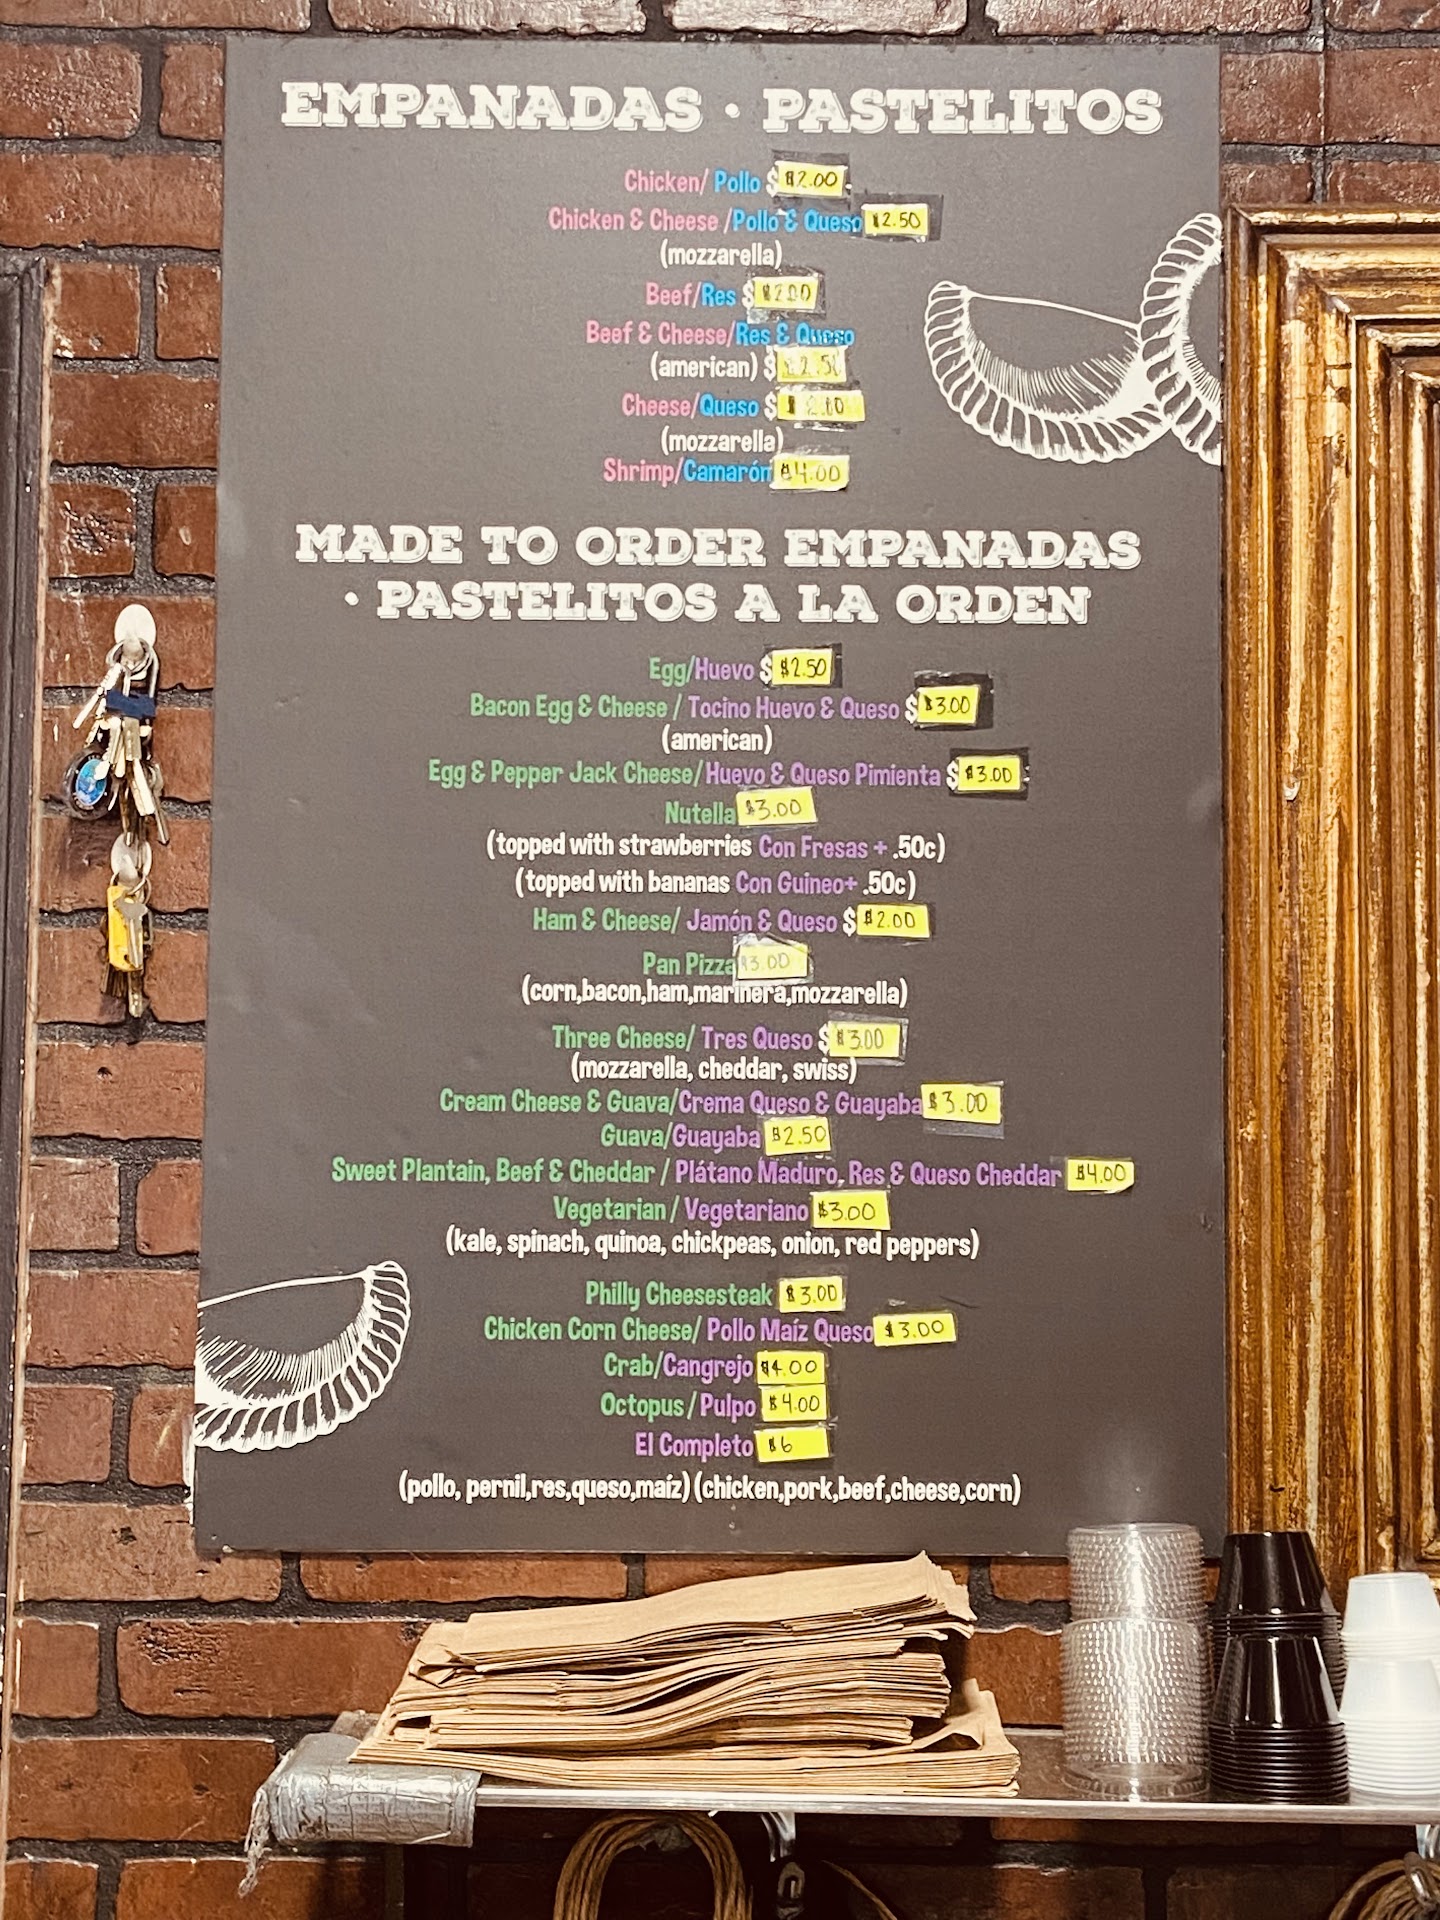 EMPANADAS • PASTELITOS
Chicken/ Pollo $ $2.00
Chicken & Cheese /Pollo & Queso $2.50
(mozzarella)
Beef/Res $ $2.00
Beef & Cheese/Res & Queso
(american) $ 2.50
Cheese/Queso $ $2.00
(mozzarella)
Shrimp/Camarón $4.00
MADE TO ORDER EMPANADAS
• PASTELITOS A LA ORDEN
Egg/Huevo $ $2.50
Bacon Egg & Cheese / Tocino Huevo & Queso $ $3.00
(american)
Egg & Pepper Jack Cheese/Huevo & Queso Pimienta $ $3.00
Nutella $3.00
(topped with strawberries Con Fresas + .50c)
(topped with bananas Con Guineo+ .50c)
Ham & Cheese/ Jamón & Queso $ $2.00
Pan Pizza $3.00
(corn,bacon,ham,marinera,mozzarella)
Three Cheese/ Tres Queso $ $3.00
(mozzarella, cheddar, swiss)
Cream Cheese & Guava/Crema Queso & Guayaba $3.00
Guava/Guayaba $2.50
Sweet Plantain, Beef & Cheddar / Plátano Maduro, Res & Queso Cheddar $4.00
Vegetarian / Vegetariano $3.00
(kale, spinach, quinoa, chickpeas, onion, red peppers)
Philly Cheesesteak $3.00
Chicken Corn Cheese/ Pollo Maíz Queso $3.00
Crab/Cangrejo $4.00
Octopus / Pulpo $4.00
El Completo $6
(pollo, pernil,res,queso,maíz) (chicken,pork,beef,cheese,corn)